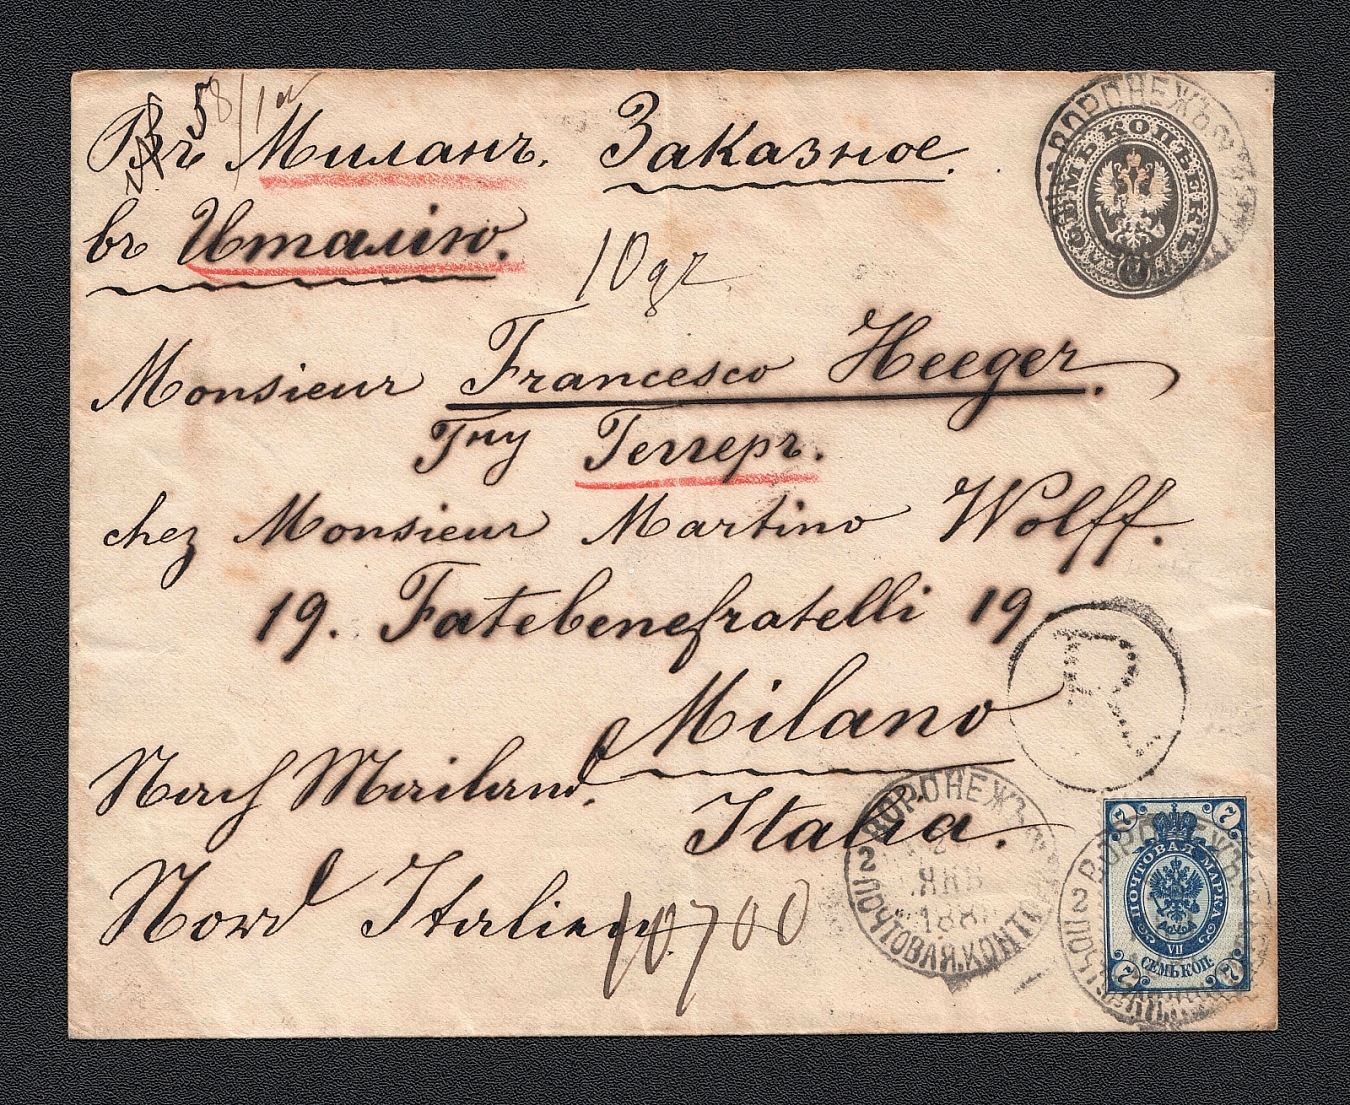 58/1
Въ Миланъ. Заказное.
въ Италію.
10 gr
Monsieur Francesco Heeger.
Гну Геггеръ.
chez Monsieur Martino Wolff.
19. Fatebenefratelli 19.
Milano
Italia.
Nach Mailand.
Nord Italien
10700
ВОРОНЕЖЪ
СЕМЬ КОПѢЕКЪ
R
ВОРОНЕЖЪ
2 ПОЧТОВАЯ. КОНТО
ЯНВ
188
7 7
ПОЧТОВАЯ МАРКА
VII
СЕМЬ КОП.
7 7
ВОРОНЕЖЪ
2